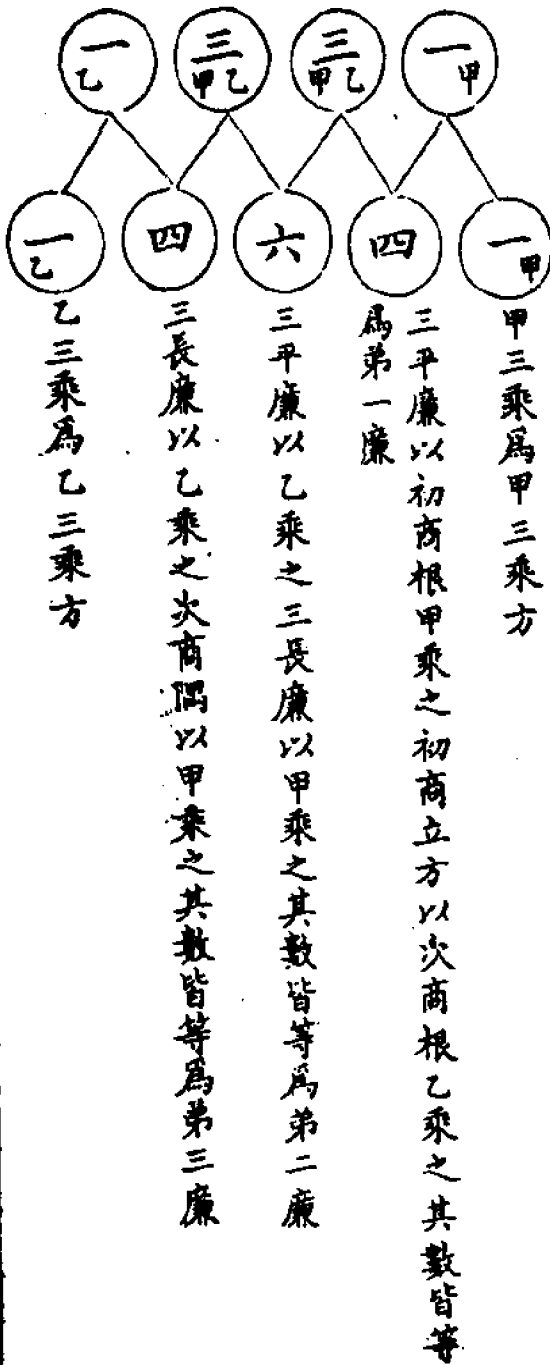 一甲
三甲乙
三甲乙
一乙
一甲
四
六
四
一乙
甲三乘爲甲三乘方
三平廉以初商根甲乘之初商立方以次商根乙乘之其數皆等
爲第一廉
三平廉以乙乘之三長廉以甲乘之其數皆等爲第二廉
三長廉以乙乘之次商隅以甲乘之其數皆等爲第三廉
乙三乘爲乙三乘方